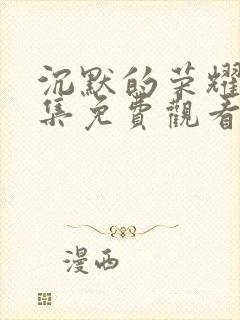 沉默的荣耀
集免費觀看
漫西